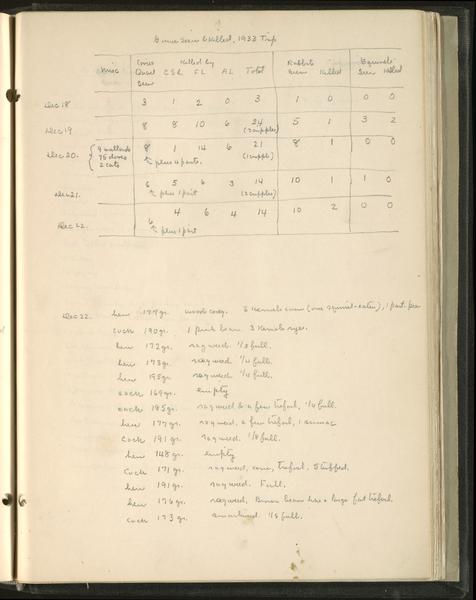 Game Seen & Killed, 1933 Trip
Misc Coveys Quail Seen Killed by CSL FL AL Total Rabbits Seen Killed Squirrels Seen Killed
Dec 18 3 1 2 0 3 1 0 0 0
Dec 19 8 8 10 6 24 (2 cripples) 5 1 3 2
Dec 20. { 9 mallards 75 doves 2 cats 8 plus 4 parts. 1 14 6 21 (1 cripple) 8 1 0 0
Dec 21. 6 plus 1 part 5 6 3 14 (2 cripples) 10 1 1 0
Dec 22. 6 plus 1 part 4 6 4 14 10 2 0 0
Dec 22. hen 179 gr. 3 Kernels corn (one squirrel-eaten), 1 part. pea
cock 190 gr. 1 pink bean 3 Kernels rye.
hen 172 gr. ragweed 1/8 full.
hen 173 gr. ragweed 1/4 full.
hen 195 gr. ragweed 1/4 full.
cock 169 gr. empty
cock 185 gr. ragweed & a few trefoil, 1/4 full.
hen 177 gr. ragweed, a few trefoil, 1 sumac
cock 191 gr. ragweed. 1/8 full.
hen 148 gr. empty
cock 171 gr. ragweed, corn, trefoil, Stuffed.
hen 191 gr. ragweed Full.
hen 176 gr. ragweed, trefoil.
cock 173 gr. 1/8 full.